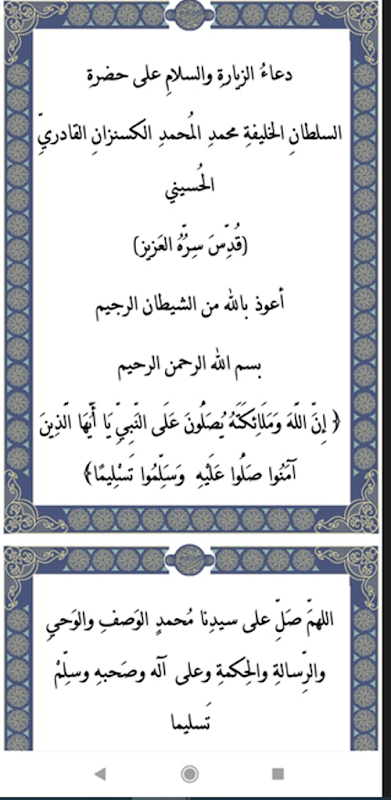 دعاءُ الزيارةِ والسلامِ على حضرةِ
السلطانِ الخليفةِ محمدِ المُحمدِ الكسنزانِ القادريِّ
الحُسيني
(قُدِّسَ سِرُّهُ العَزيز)
أعوذ بالله من الشيطان الرجيم
بسم الله الرحمن الرحيم
﴿ إِنَّ اللَّهَ وَمَلَائِكَتَهُ يُصَلُّونَ عَلَى النَّبِيِّ يَا أَيُّهَا الَّذِينَ
آمَنُوا صَلُّوا عَلَيْهِ وَسَلِّمُوا تَسْلِيمًا﴾
اللهمَّ صَلِّ على سيدِنا مُحمدٍ الوَصفِ والوَحيِ
والرِّسالةِ والحِكمةِ وعلى آله وصَحبهِ وسلِّمْ
تَسليما